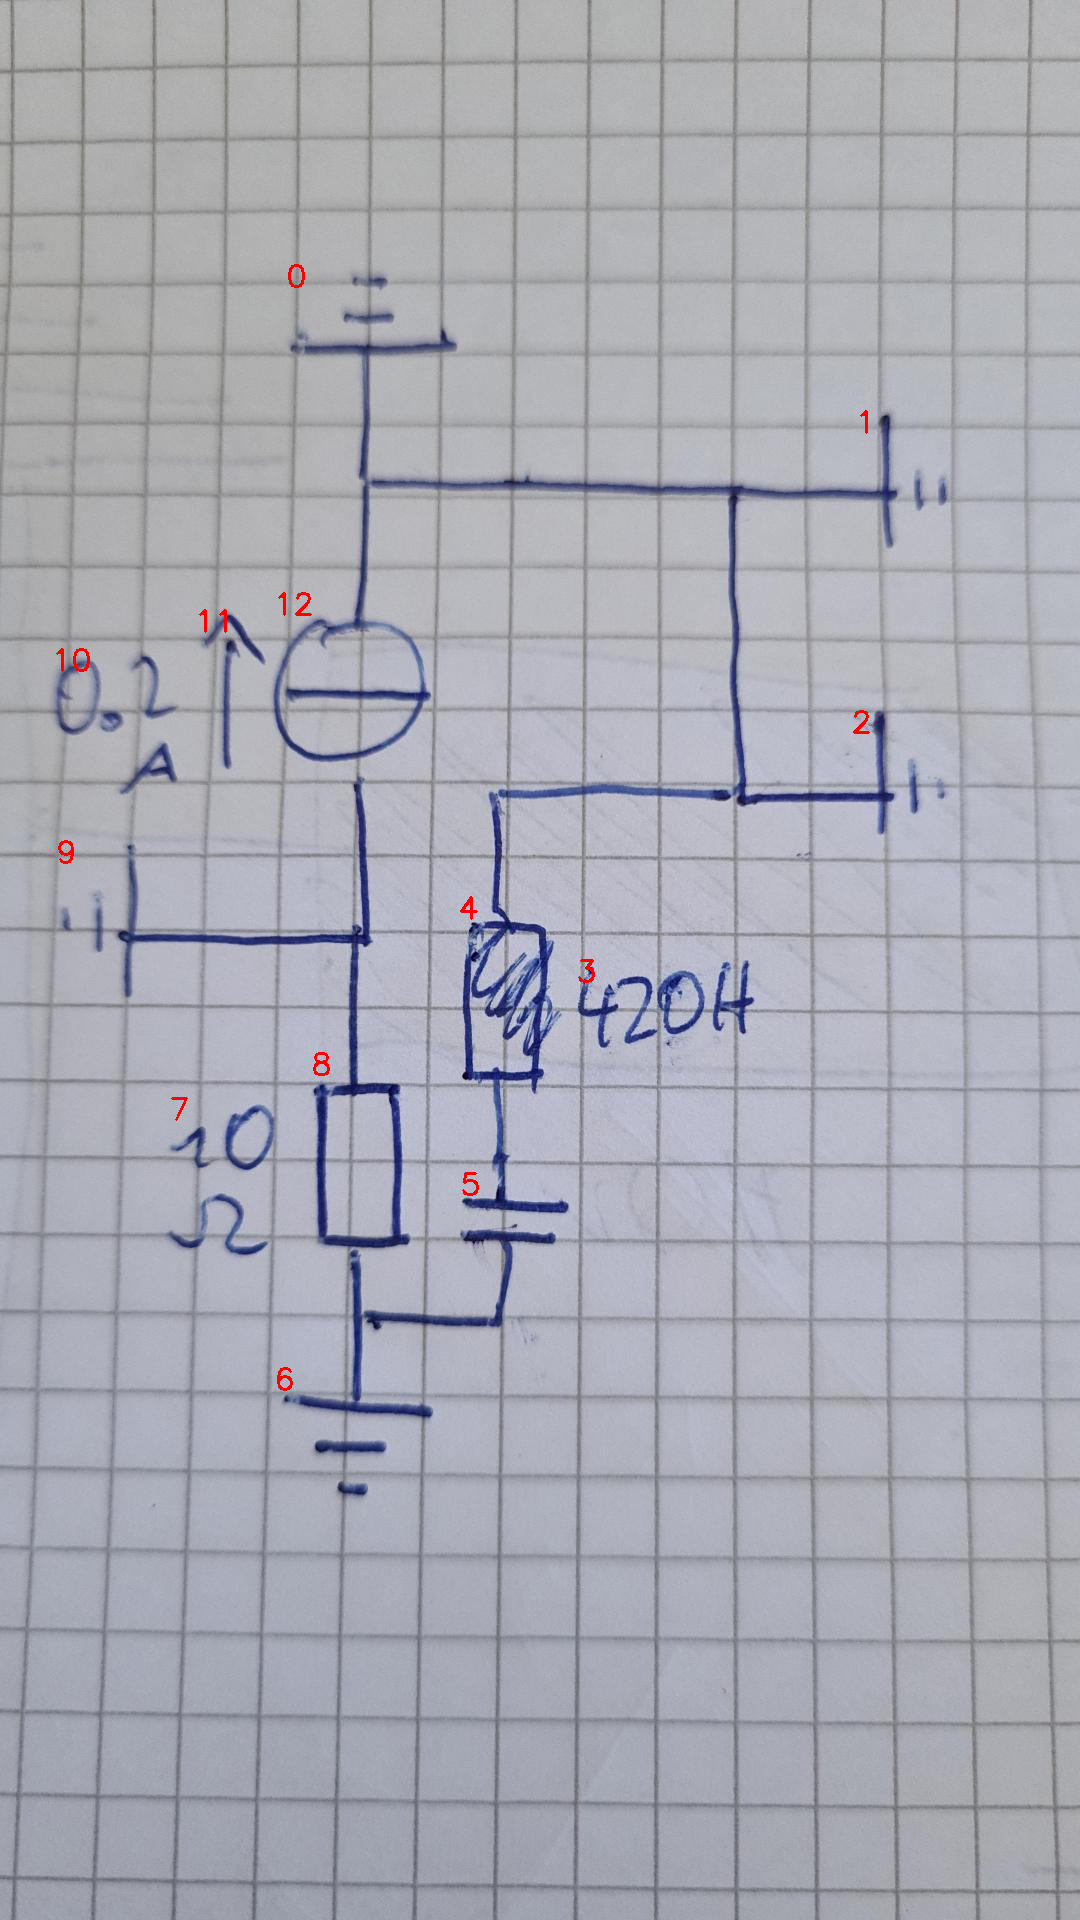 0
1
12
11
10
0.2
A
2
9
4
3
420H
8
7
10
Ω
5
6